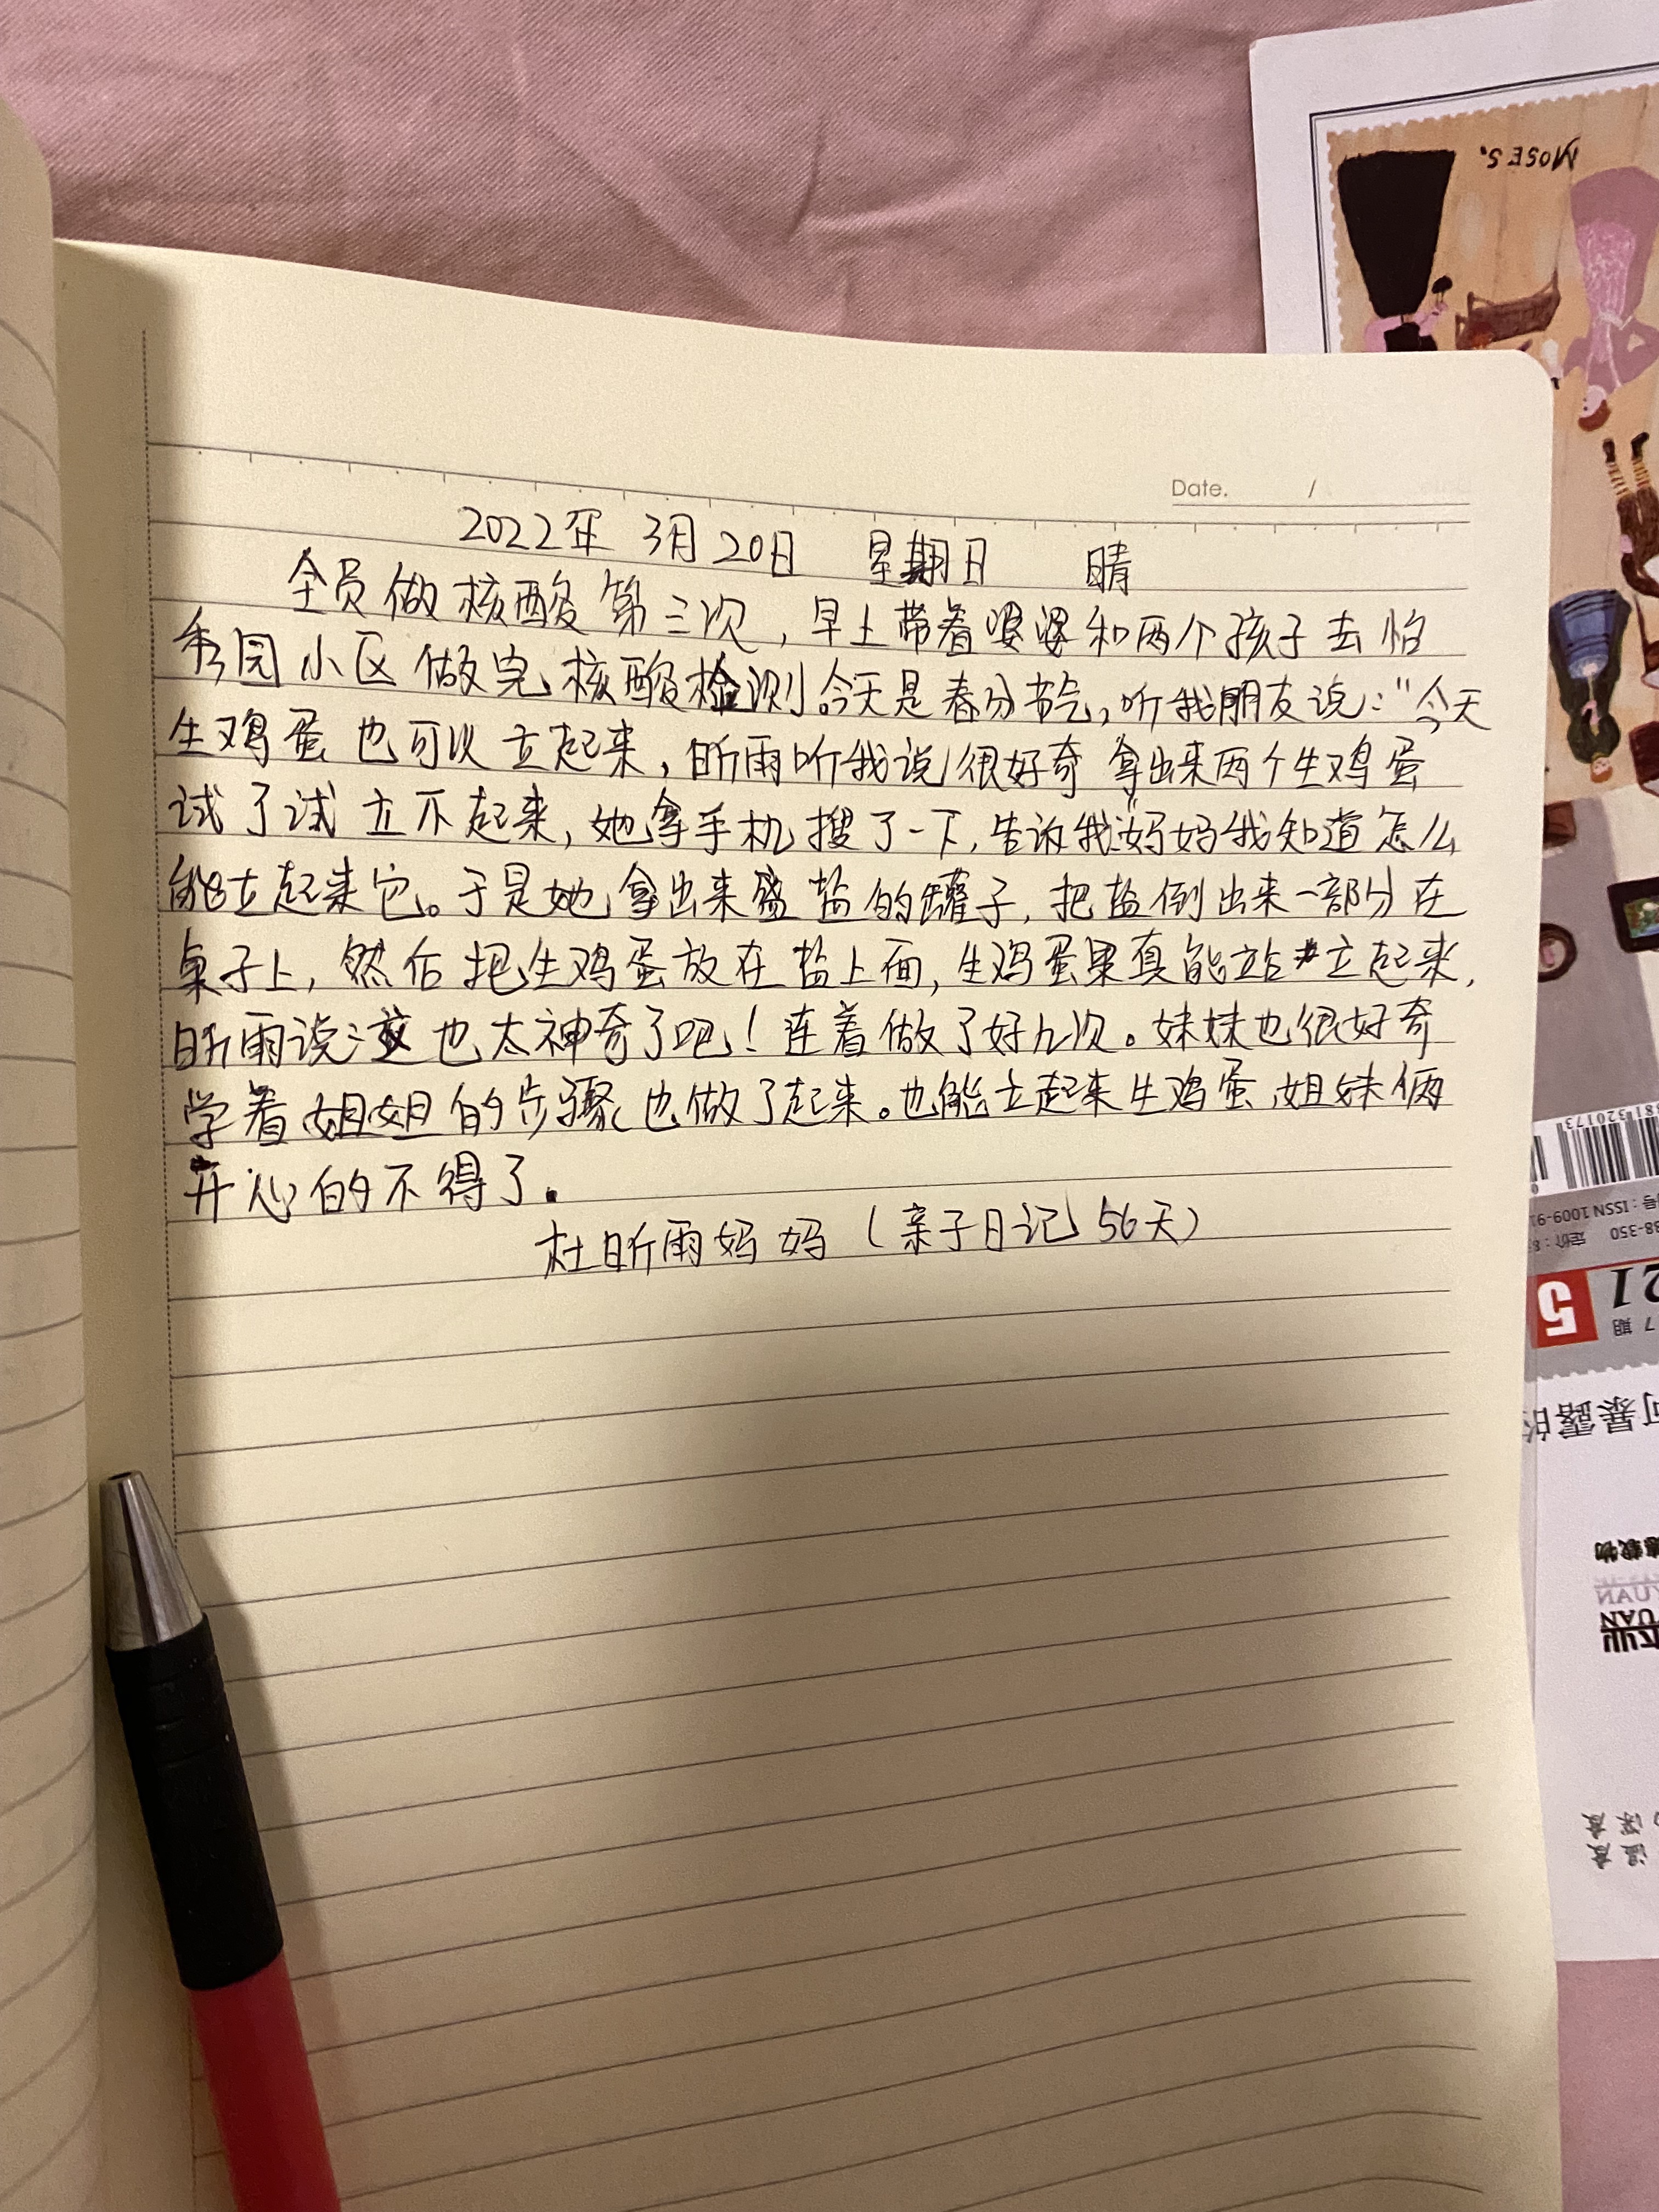 Date. /
2022年 3月20日 星期日 晴
全员做核酸第三次,早上带着婆婆和两个孩子去怡
秀园小区做完核酸检测。今天是春分节气,听我朋友说:"今天
生鸡蛋也可以立起来,昕雨听我说很好奇 拿出来两个生鸡蛋
试了试立不起来,她拿手机搜了一下,告诉我"妈妈我知道怎么
能立起来它。于是她拿出来盛盐的罐子,把盐倒出来一部分在
桌子上,然后把生鸡蛋放在盐上面,生鸡蛋果真能站立起来,
昕雨说:这也太神奇了吧!连着做了好几次。妹妹也很好奇
学着姐姐的步骤也做了起来。也能立起来生鸡蛋,姐妹俩
开心的不得了。
杜昕雨妈妈(亲子日记56天)
MOSES.
ISSN 1009-9
5
21
7 期
暴露的
YUAN
YUAN
深度
温度